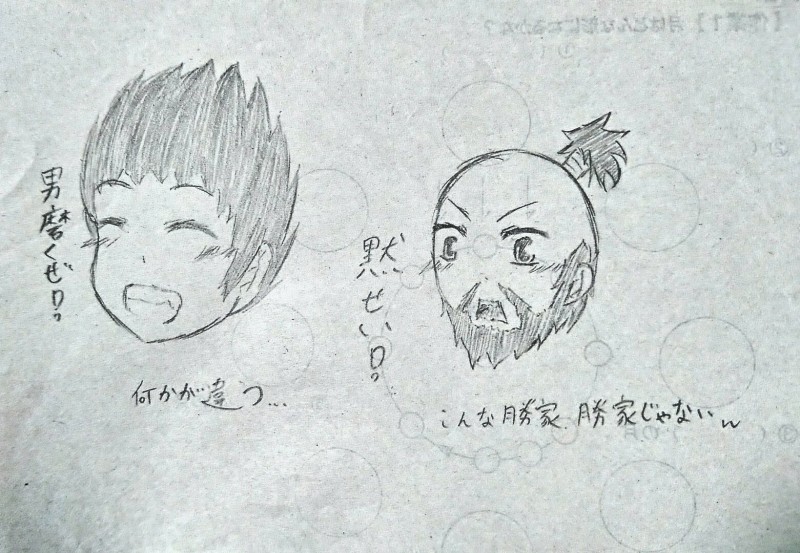 男磨くぜ!!
何かが違う...
黙せい!!
こんな勝家、勝家じゃないw